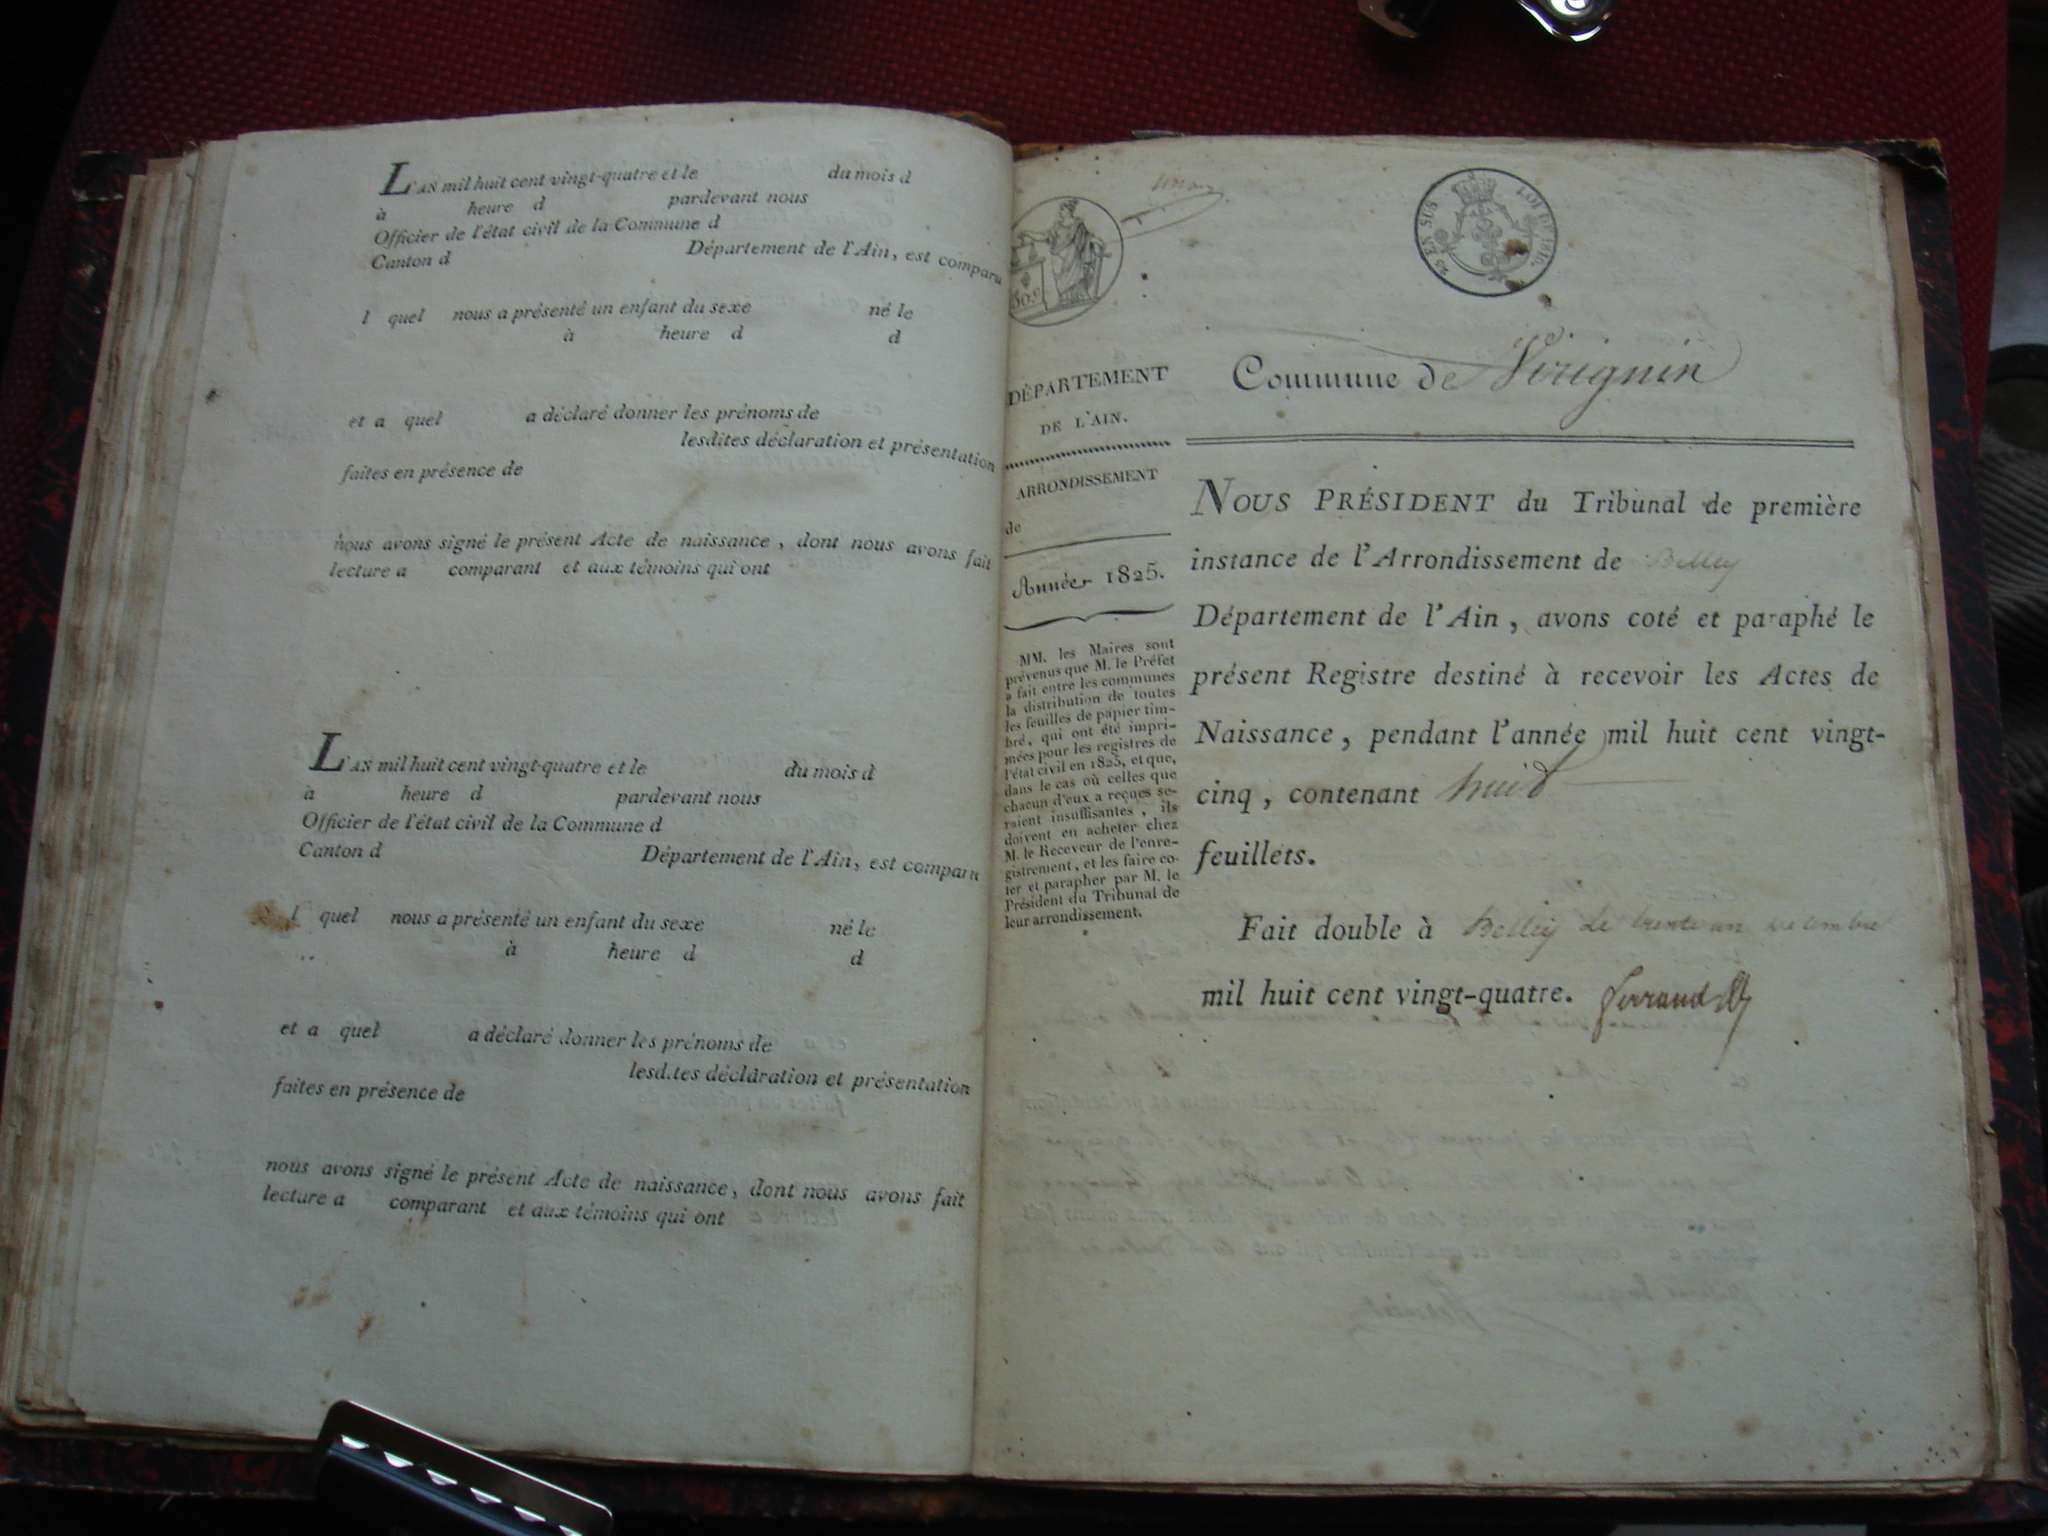 L'AN mil huit cent vingt-quatre et le du mois d
à heure d pardevant nous
Officier de l'état civil de la Commune d
Canton d Département de l'Ain, est comparu
l quel nous a présenté un enfant du sexe né le
à heure d d
et a quel a déclaré donner les prénoms de
lesdites déclaration et présentation
faites en présence de
nous avons signé le présent Acte de naissance, dont nous avons fait
lecture a comparant et aux témoins qui ont
L'AN mil huit cent vingt-quatre et le du mois d
à heure d pardevant nous
Officier de l'état civil de la Commune d
Canton d Département de l'Ain, est comparu
l quel nous a présenté un enfant du sexe né le
à heure d d
et a quel a déclaré donner les prénoms de
lesd.tes déclaration et présentation
faites en présence de
nous avons signé le présent Acte de naissance, dont nous avons fait
lecture a comparant et aux témoins qui ont
EN SUS LOI DE 1816.
DÉPARTEMENT
DE L'AIN.
ARRONDISSEMENT
de
Année 1825.
MM. les Maires sont
prévenus que M. le Préfet
a fait entre les communes
la distribution de toutes
les feuilles de papier tim-
bré, qui ont été impri-
mées pour les registres de
l'état civil en 1825, et que,
dans le cas où celles que
chacun d'eux a reçues se-
raient insuffisantes, ils
doivent en acheter chez
M. le Receveur de l'enre-
gistrement, et les faire co-
ter et parapher par M. le
Président du Tribunal de
leur arrondissement.
Commune de Virignin
NOUS PRÉSIDENT du Tribunal de première
instance de l'Arrondissement de Belley
Département de l'Ain, avons coté et paraphé le
présent Registre destiné à recevoir les Actes de
Naissance, pendant l'année mil huit cent vingt-
cinq, contenant huit
feuillets.
Fait double à Belley le trente un
mil huit cent vingt-quatre.